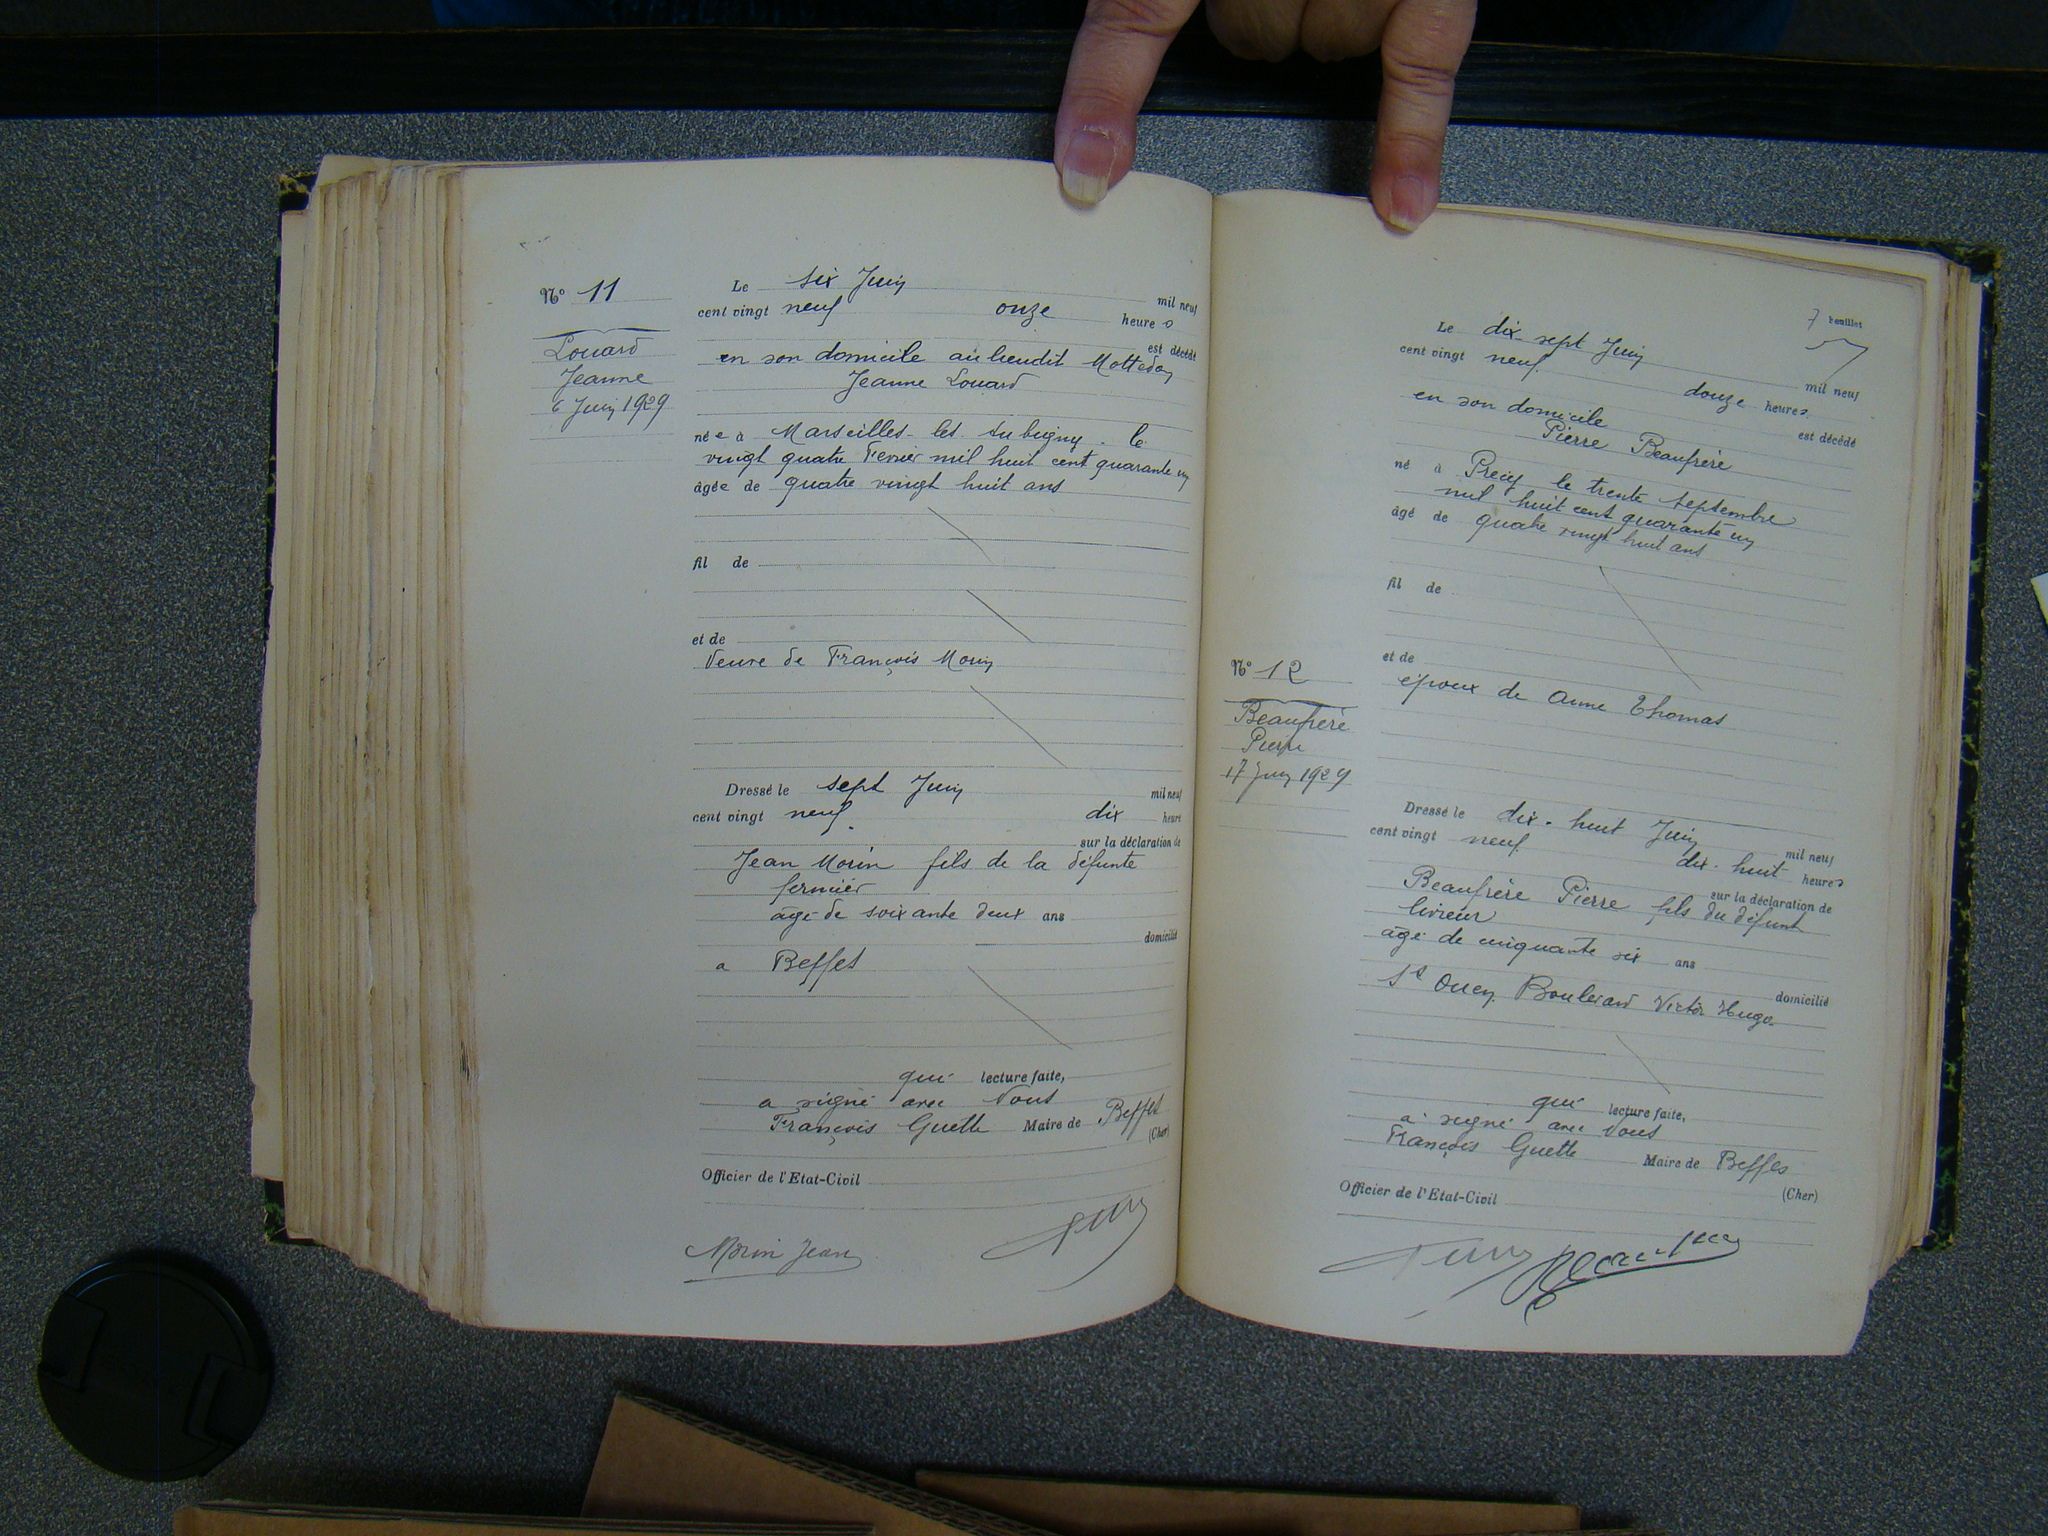 N° 11
Louard
Jeanne
6 Juin 1929
Le six Juin mil neuf
cent vingt neuf onze heures
est décédé
en son domicile au lieudit Mottedon
Jeanne Louard
née à Marseilles-les-Aubigny - le
vingt quatre Fevrier mil huit cent quarante un
âgée de quatre vingt huit ans
fil de
et de
Veuve de François Morin
Dressé le sept Juin mil neuf
cent vingt neuf dix heure
sur la déclaration de
Jean Morin fils de la défunte
fermier
âgé de soixante deux ans
domicilié
a Beffes
qui lecture faite,
a signé avec Nous
François Guette Maire de Beffes
(Cher)
Officier de l'Etat-Civil
Morin Jean
7 Feuillet
N° 12
Beaufrère
Pierre
17 Juin 1929
Le dix-sept Juin mil neuf
cent vingt neuf douze heures
est décédé
en son domicile
Pierre Beaufrère
né à Precy le trente septembre
mil huit cent quarante un
âgé de quatre vingt huit ans
fil de
et de
époux de Anne Thomas
Dressé le dix-huit Juin mil neuf
cent vingt neuf dix-huit heures
sur la déclaration de
Beaufrère Pierre fils du défunt
livreur
âgé de cinquante six ans
domicilié
St Ouen Boulevard Victor Hugo
qui lecture faite,
a signé avec Nous
François Guette Maire de Beffes
(Cher)
Officier de l'Etat-Civil